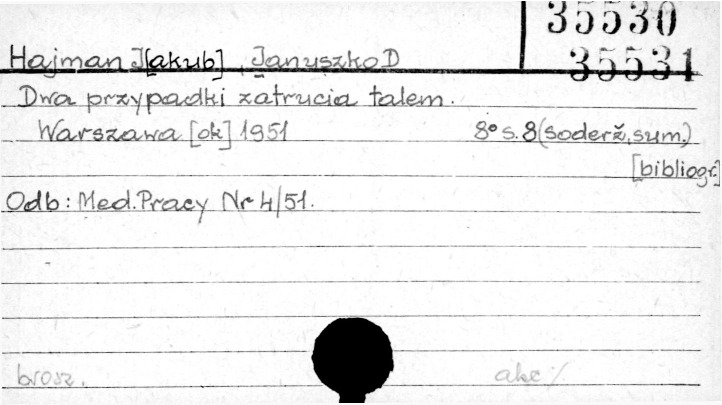 35530
Hajman J[akub], Januszko D
35531
Dwa przypadki zatrucia talem.
Warszawa [ok] 1951 8° s. 8 (soderž, sum.)
[bibliogr.]
Odb: Med. Pracy Nr 4/51.
brosz. akc /.